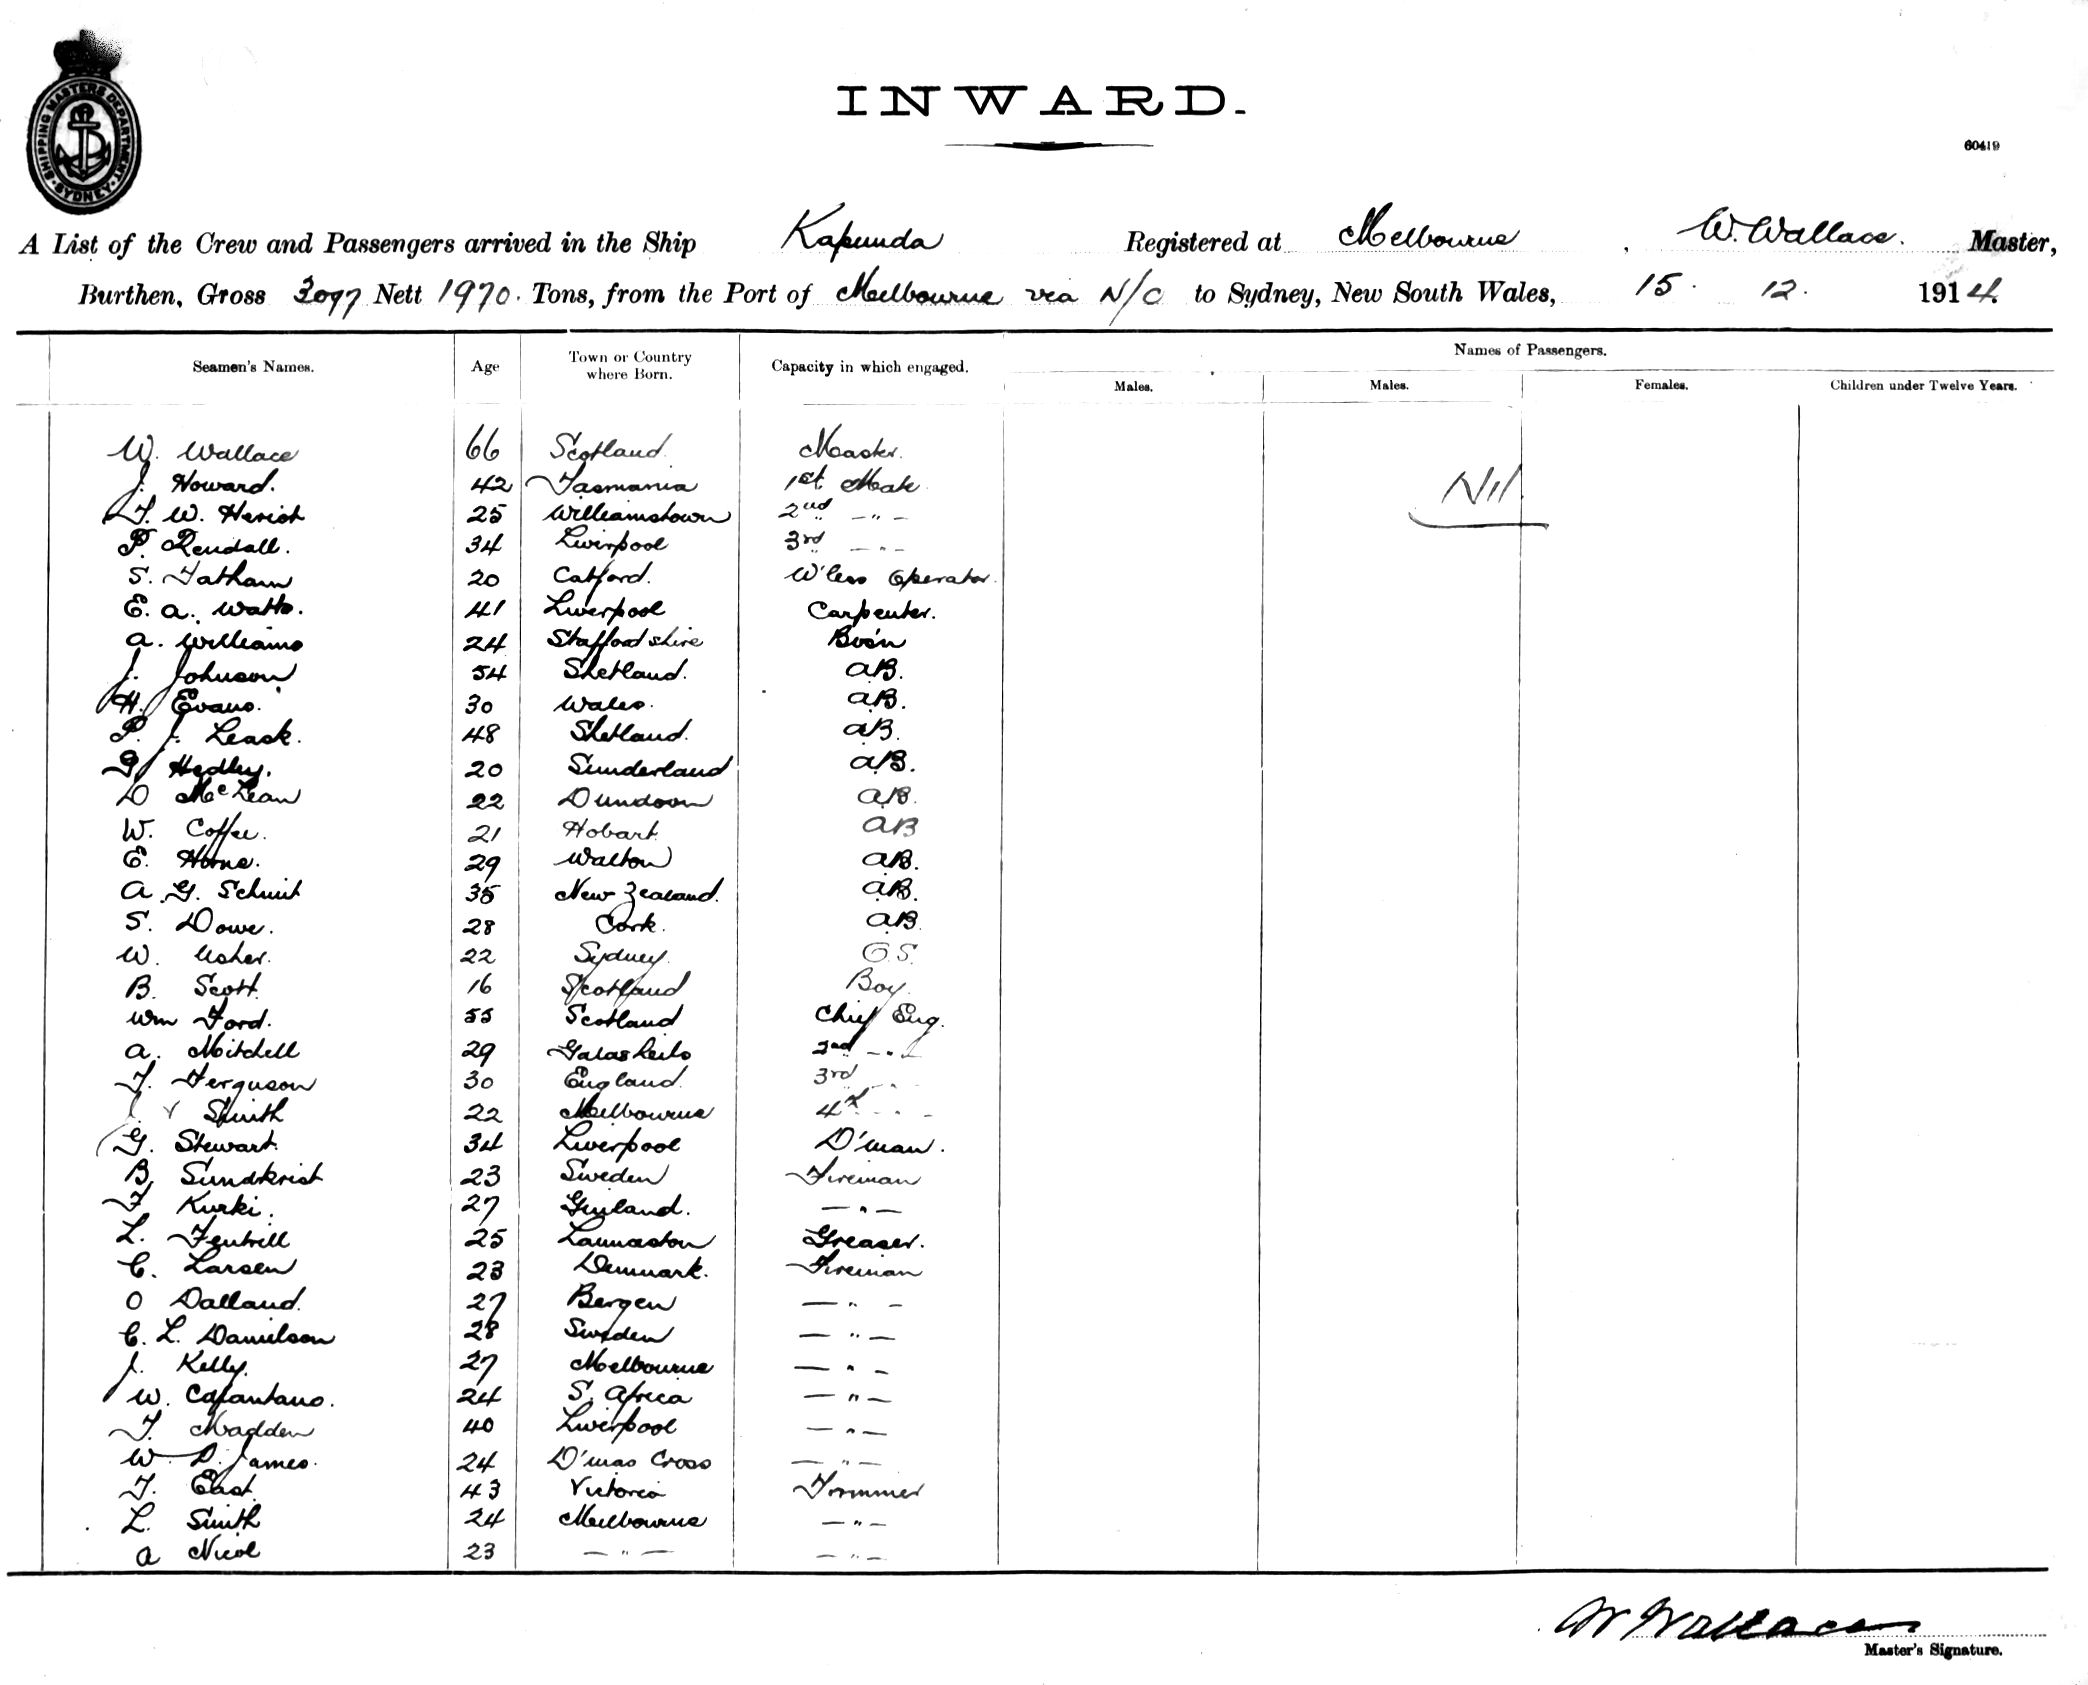 SHIPPING MASTERS DEPARTMENT SYDNEY
INWARD.
60419
A List of the Crew and Passengers arrived in the Ship Kapunda Registered at Melbourne, W. Wallace. Master,
Burthen, Gross 3097 Nett 1970. Tons, from the Port of Melbourne via N/C to Sydney, New South Wales, 15. 12. 1914.
Seamen's Names. Age Town or Country where Born. Capacity in which engaged. Names of Passengers.
Males. Males. Females. Children under Twelve Years.
W. Wallace 66 Scotland. Master.
J. Howard. 42 Tasmania 1st Mate
Nil
T. W. Heriot 25 Williamstown 2nd — " —
P. Rendall. 34 Liverpool 3rd — " —
S. Tatham 20 Catford. W'less Operator.
E. A. Watts. 41 Liverpool Carpenter.
A. Williams 24 Staffordshire Bos'n
J. Johnson 54 Shetland. AB.
H. Evans. 30 Wales. AB.
P. J. Leask. 48 Shetland. AB.
G. Hedley. 20 Sunderland AB.
D McLean 22 Dundoon AB.
W. Coffee. 21 Hobart AB
E. Horne. 29 Walton AB.
A. G. Schmit 35 New Zealand. AB.
S. Dowe. 28 Cork. AB.
W. Usher. 22 Sydney. O.S.
B. Scott. 16 Scotland Boy.
Wm Ford. 55 Scotland Chief Eng.
A. Mitchell 29 Galasheils 2nd — " —
T. Ferguson 30 England. 3rd " —
Smith 22 Melbourne 4th " —
G. Stewart. 34 Liverpool D'man.
B. Sundkrist 23 Sweden Fireman
F Kurki. 27 Finland. — " —
L. Fentrill 25 Launceston Greaser.
C. Larsen 23 Denmark. Fireman
O Dalland. 27 Bergen — " —
C. L. Danielson 28 Sweden — " —
J. Kelly. 27 Melbourne — " —
W. Capantano. 24 S. Africa — " —
T. Madden 40 Liverpool — " —
W. D. James. 24 D'mas Cross — " —
T. East. 43 Victoria Trimmer
L. Smith 24 Melbourne — " —
A Nicol 23 — " — — " —
W Wallace
Master's Signature.